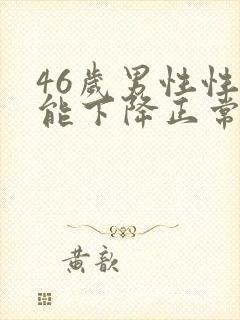 46歲男性性
能下降正常
黄歆